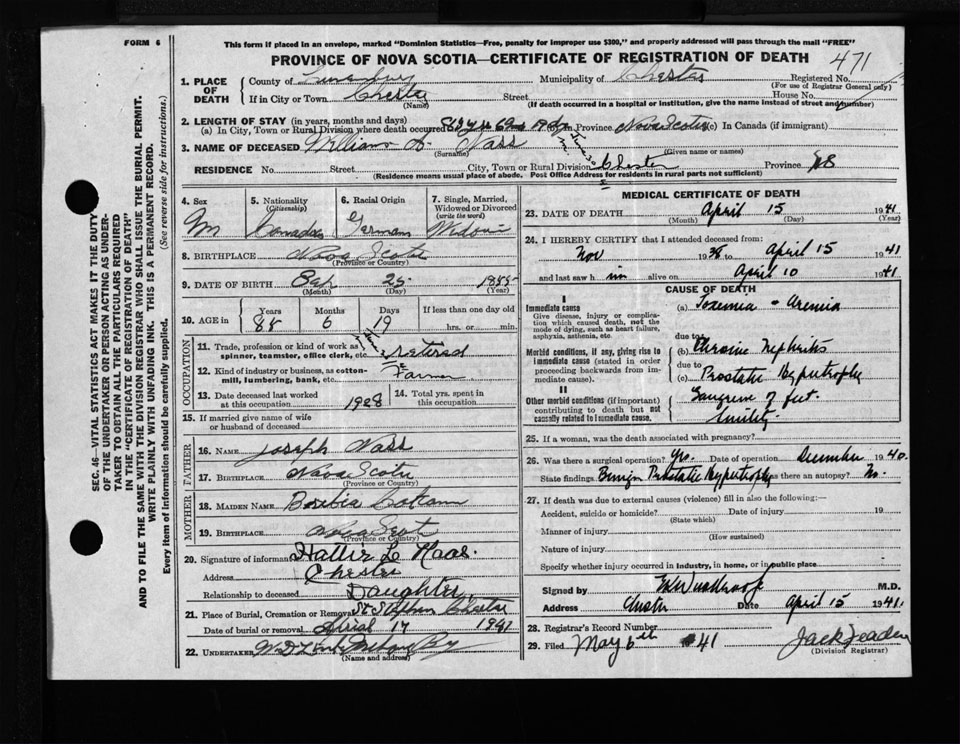 FORM 6
This form if placed in an envelope, marked "Dominion Statistics—Free, penalty for improper use $300," and properly addressed will pass through the mail "FREE"
PROVINCE OF NOVA SCOTIA—CERTIFICATE OF REGISTRATION OF DEATH 471
1. PLACE OF DEATH County of Lunenburg Municipality of Chester Registered No.
(For use of Registrar General only)
If in City or Town Chester Street House No.
(Name) (If death occurred in a hospital or institution, give the name instead of street and number)
2. LENGTH OF STAY (in years, months and days)
(a) In City, Town or Rural Division where death occurred (b) In Province Nova Scotia (c) In Canada (if immigrant)
3. NAME OF DECEASED William A. Nass
(Surname) (Given name or names)
RESIDENCE No. Street City, Town or Rural Division Chester Province NS
(Residence means usual place of abode. Post Office Address for residents in rural parts not sufficient)
4. Sex M
5. Nationality (Citizenship) Canadian
6. Racial Origin German
7. Single, Married, Widowed or Divorced (write the word)
8. BIRTHPLACE Nova Scotia
(Province or Country)
9. DATE OF BIRTH 25
(Month) (Day) (Year)
10. AGE in Years Months Days If less than one day old
88 6 19 hrs. or min.
OCCUPATION
11. Trade, profession or kind of work as spinner, teamster, office clerk, etc. retired
12. Kind of industry or business, as cotton-mill, lumbering, bank, etc. Farmer
13. Date deceased last worked at this occupation 1928
14. Total yrs. spent in this occupation
15. If married give name of wife or husband of deceased
FATHER
16. NAME Joseph Nass
17. BIRTHPLACE Nova Scotia
(Province or Country)
MOTHER
18. MAIDEN NAME
19. BIRTHPLACE Nova Scotia
(Province or Country)
20. Signature of informant Hallie L. Naas.
Address Chester
Relationship to deceased Daughter.
21. Place of Burial, Cremation or Removal St Stephen Chester
Date of burial or removal April 17 1941
22. UNDERTAKER
(Name and address)
MEDICAL CERTIFICATE OF DEATH
23. DATE OF DEATH April 15 1941
(Month) (Day) (Year)
24. I HEREBY CERTIFY that I attended deceased from:
Nov 1938 to April 15 1941
and last saw him alive on April 10 1941
CAUSE OF DEATH
I
Immediate cause (a) Toxemia - Uremia
Give disease, injury or complication which caused death, not the mode of dying, such as heart failure, asphyxia, asthenia, etc.
due to
Morbid conditions, if any, giving rise to immediate cause (stated in order proceeding backwards from immediate cause).
(b) Chronic Nephritis
due to
(c) Prostatic Hypertrophy
II
Other morbid conditions (if important) contributing to death but not causally related to immediate cause.
Gangrene of feet.
Senility
25. If a woman, was the death associated with pregnancy?
26. Was there a surgical operation? Yes Date of operation December 1940.
State findings Benign Prostatic Hypertrophy Was there an autopsy? No
27. If death was due to external causes (violence) fill in also the following:—
Accident, suicide or homicide? Date of injury 19
(State which)
Manner of injury
(How sustained)
Nature of injury
Specify whether injury occurred in industry, in home, or in public place
Signed by M.D.
Address Chester Date April 15 1941.
28. Registrar's Record Number
29. Filed May 6th 41 Jack
(Division Registrar)
SEC. 46—VITAL STATISTICS ACT MAKES IT THE DUTY
OF THE UNDERTAKER OR PERSON ACTING AS UNDER-
TAKER TO OBTAIN ALL THE PARTICULARS REQUIRED
IN THE "CERTIFICATE OF REGISTRATION OF DEATH"
AND TO FILE THE SAME WITH THE DIVISION REGISTRAR WHO SHALL ISSUE THE BURIAL PERMIT.
WRITE PLAINLY WITH UNFADING INK. THIS IS A PERMANENT RECORD.
Every item of information should be carefully supplied. (See reverse side for instructions.)